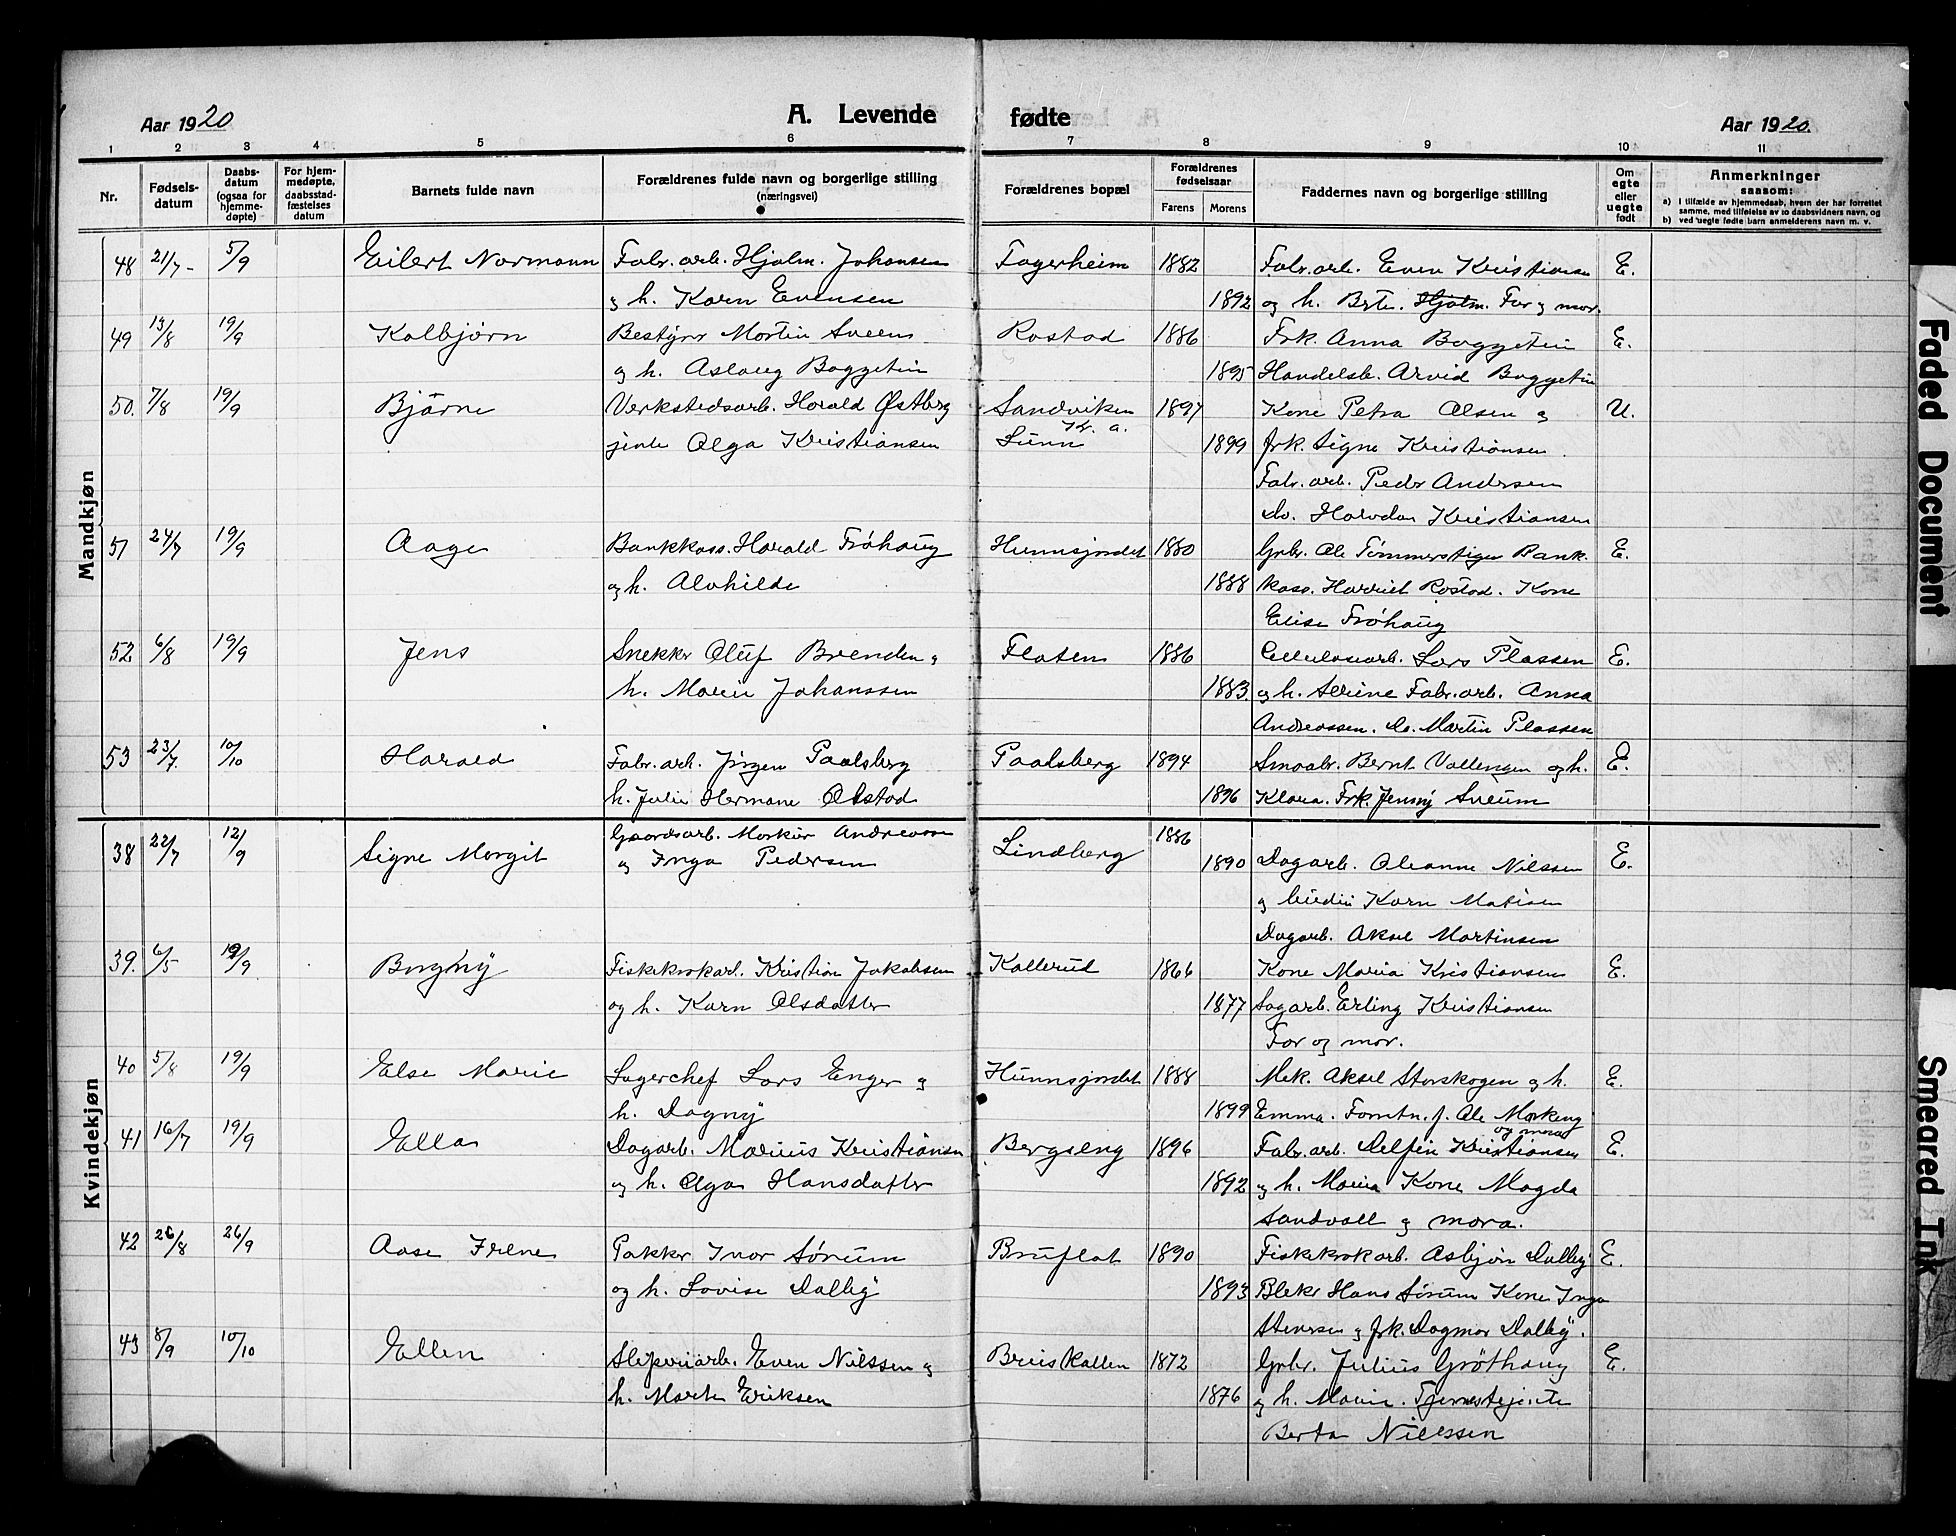 Aar 1920
A. Levende
fødte
Aar 1920.
1 2 3 4 5 6 7 8 9 10 11
Nr.
Fødsels-
datum
Daabs-
datum
(ogsaa for
hjemme-
døpte)
For hjem-
medøpte,
daabsstad-
fæstelses
datum
Barnets fulde navn
Forældrenes fulde navn og borgerlige stilling
(næringsvei)
Forældrenes bopæl
Forældrenes
fødselsaar
Farens Morens
Faddernes navn og borgerlige stilling
Om
egte
eller
uegte
født
Anmerkninger
saasom:
a) I tilfælde av hjemmedaab, hvem der har forrettet
samme, med tilføielse av to daabsvidners navn, og
b) ved uegte fødte barn anmelderens navn m. v.
Mandkjøn
48 21/7 5/9 Eilert Normann Fabr.arb. Hjalm. Johansen Fagerheim 1882 Fabr.arb. Even Kristiansen E.
og h. Karn Evensen 1892 og h. Brte. Hjalm. Far og mor.
49 13/8 19/9 Kolbjørn Bestyrer Martin Sveen Rostad 1886 Frk. Anna Baggetin E.
og h. Aslaug Baggetin 1895 Handelsb. Arvid Baggetin
50. 7/8 19/9 Bjarne Verkstedsarb. Harald Østberg Sandviken 1897 Kone Petra Olsen og U.
Kr. a.
jente Olga Kristiansen Sunn 1899 frk. Signe Kristiansen.
Fabr.arb. Peder Andersen
Do. Halvdan Kristiansen
51 24/7 19/9 Aage Bankkass. Harald Frøhaug Hunnsjordet 1880 Gbr. Ole Tømmerstigen Bank. E.
og h. Alvhilde 1888 kass. Harriet Rostad. Kone
Elise Frøhaug
52 6/8 19/9 Jens Snekker Oluf Brenden og Flaten 1886 Cellulosearb. Lars Plassen E.
h. Marie Johanssen 1883 og h. Serine Fabr.arb. Anna
Andreassen. Do. Martin Plassen
53 23/7. 10/10 Harald Fabr.arb. Jørgen Paalsberg Paalsberg 1894 Smaabr. Bernt Vallengen og h. E.
h. Julie Hermane Olstad 1896 Klara. Frk. Jenny Sveum
Kvindekjøn
38 22/7 12/9 Signe Margit Gaardsarb. Markus Andreassen Lindberg 1886
og Inga Pedersen 1890 Dagarb. Oleanne Nilssen E.
og Karn Matisen
Dagarb. Aksel Martinsen
39. 6/5 19/9 Borghy Fiskekrokarb. Kristian Jakobsen Kallerud 1866 Kone Maria Kristiansen E.
og h. Karn Olsdatter 1877 Sagarb. Erling Kristiansen
Far og mor.
40 5/8 19/9 Else Marie Lagerchef Lars Enger og Hunnsjordet 1888 Mek. Aksel Storskogen og h. E.
h. Dagny 1899 Emma. Forretn.f. Ole Morkeng
og mora
41 16/7 19/9 Ella Dagarb. Marius Kristiansen Bergseng 1896 Fabr.arb. Delfin Kristiansen E.
og h. Olga Hansdatter 1892 og h. Maria Kone Magda
Sandvoll og mora.
42 26/8 26/9 Aase Irene Pakker Ivar Sørum Bruflat 1890 Fiskekrokarb. Asbjørn Dalby E.
og h. Lovise Dalby 1893 Bleker Hans Sørum Kone Inga
Stensen og frk. Dagmar Dalby.
43 8/9 10/10 Ellen Sliperiarb. Even Nilssen og Bruiskallen 1872 Gbr. Julius Grøthaug E.
h. Marte Eriksen 1876 og h. Marie. Tjenestejente
Berta Nilssen
Faded Document
Smeared Ink